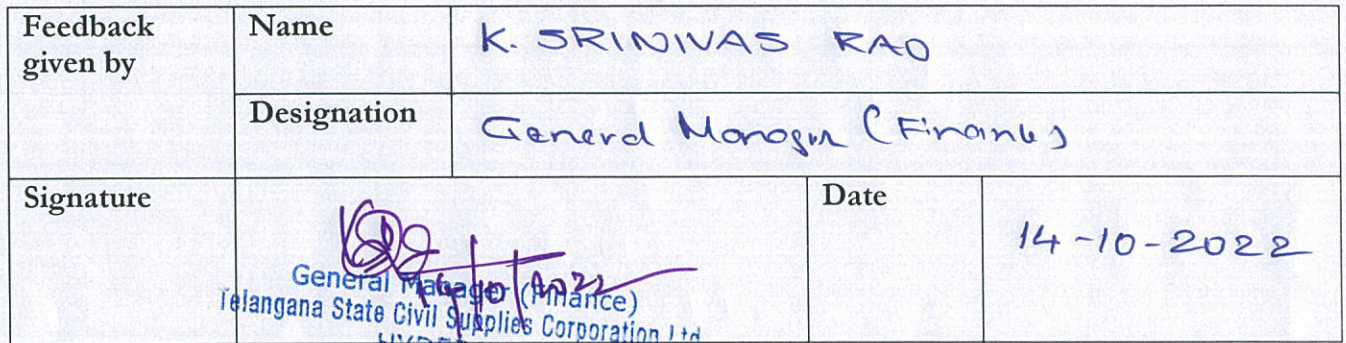 Feedback given by
Name
K. SRINIVAS RAO
Designation
General Manager (Finance)
Signature
14/10/2022
General Manager (Finance)
Telangana State Civil Supplies Corporation Ltd
Date
14-10-2022